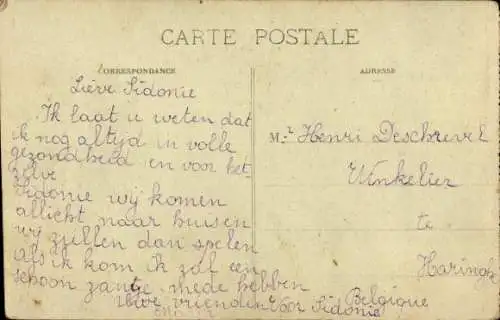 CARTE POSTALE
CORRESPONDANCE
ADRESSE
Lieve Sidonie
Ik laat u weten dat
ik nog altijd in volle
gezondheid en voor het-
zelve
Sidonie wij komen
allicht naar huisen
wij zullen dan spelen
als ik kom ik zal een
schoon zantje mede hebben
uwe vriendin
voor Sidonie
M.r Henri Deschrevel
Winkelier
te
Haringhe
Belgique